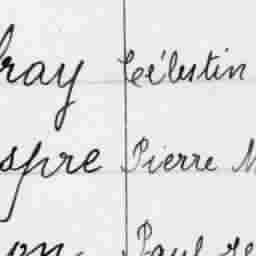 fray Célestin
spre Pierre M
on Paul